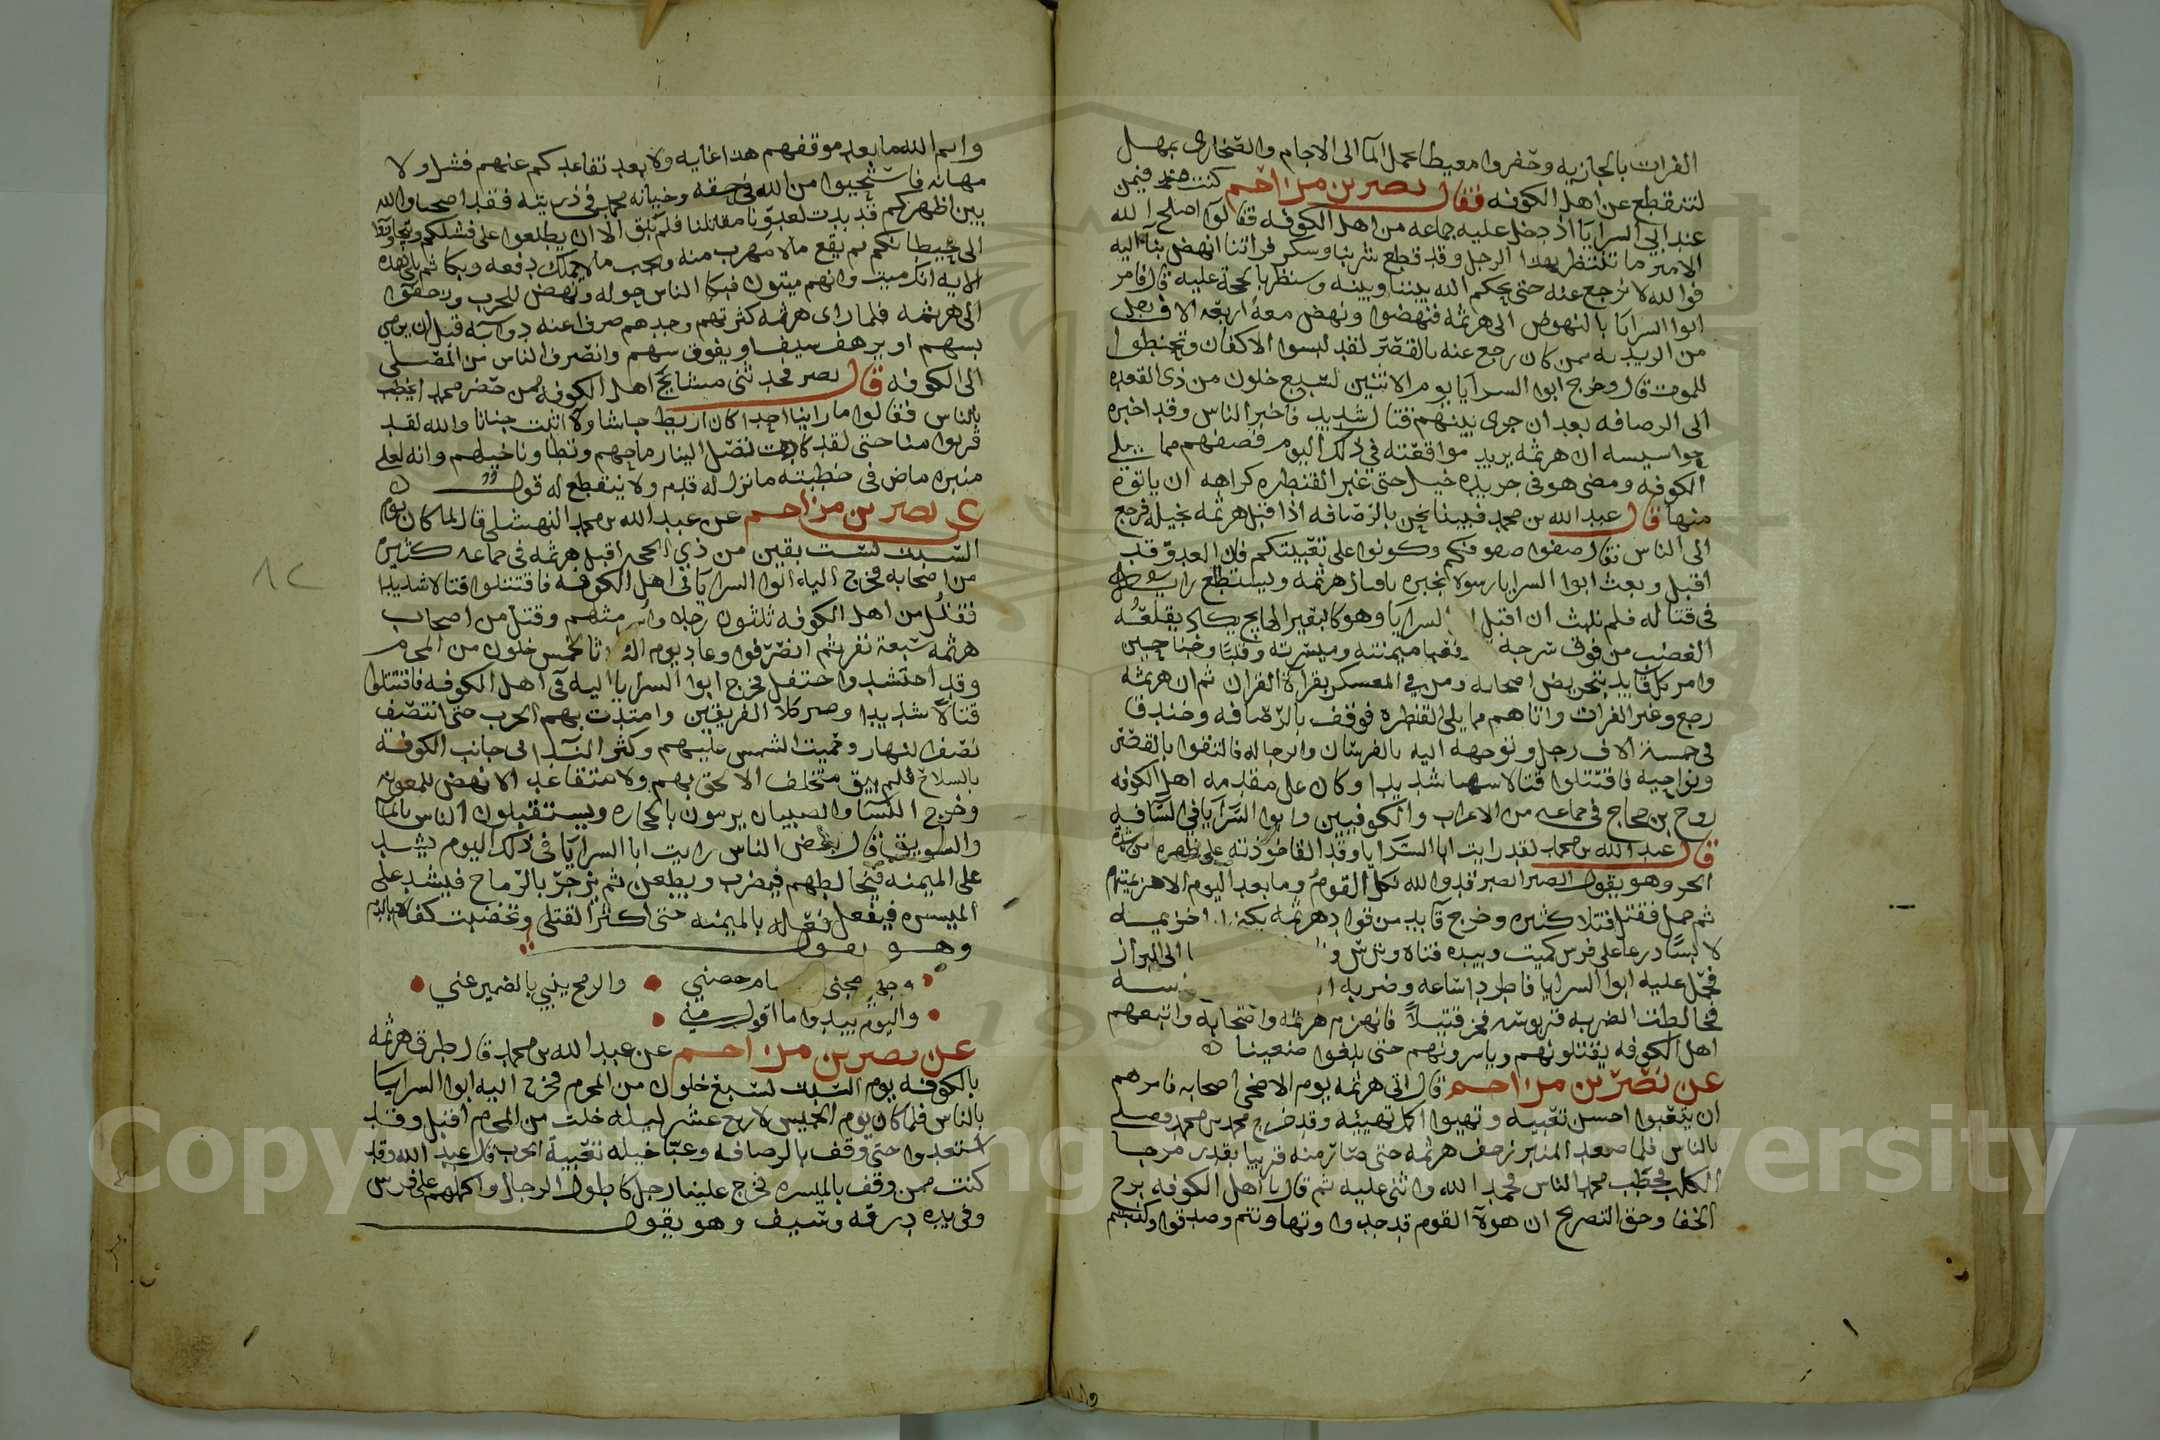 الفرات بالحازيه وحفروا معيطا يحمل المآ الى الاجام والصحارى بمهل
لتنقطع عن اهل الكوفه فقال نصر بن مزاحم كنت فيمن
عند ابي السرايا اذ دخل عليه جماعه من اهل الكوفه فقالوا اصلح الله
الامير ما تنتظر بهذا الرجل وقد قطع شربنا وسكر فراتنا انهض بنا اليه
فوالله لا نرجع عنه حتى يحكم الله بيننا وبينه وستظهر بالحجة عليه قال فامر
ابوا السرايا بالنهوض الى هرثمه فنهضوا ونهض معه اربعة الاف رجل
من الزيديه ممن كان رجع عنه بالقصر لقد لبسوا الاكفان وتحنطوا
للموت قال وخرج ابوا السرايا يوم الاثنين لسبع خلون من ذي القعده
الى الرصافه بعد ان جرى بينهم قتال شديد فاخبر الناس وقد اخبره
جواسيسه ان هرثمه يريد مواقعته في ذلك اليوم فصفهم مما يلي
الكوفه ومضى هو في جريده خيل حتى عبر القنطره كراهه ان ياتوه
منها قال عبد الله بن محمد فبينا نحن بالرصافه اذا اقبل هرثمه بخيله فرجع
الى الناس فقال صفوا صفوفكم وكونوا على تعبيتكم فان العدو قد
اقبل وبعث ابوا السرايا رسولا يخبره باقبال هرثمه ويستطلع رايه
في قتاله فلم نلبث ان اقبل السرايا وهو كالبعير الهايج يكاد يقلعه
الغضب من فوق سرجه فعبا ميمنته وميسرته وقلبا وجناحين
وامر كل قايد بتحريض اصحابه ومن في المعسكر بقرآة القران ثم ان هرثمه
رجع وعبر الفرات واتاهم مما يلي القنطره فوقف بالرصافه وخندق
في خمسة الاف رجل وتوجهه اليه بالفرسان والرجاله فالتقوا بالقصر
ونواحيه فاقتتلوا قتالا شديدا وكان على مقدمه اهل الكوفه
روح بن حجاج في جماعه من الاعراب والكوفيين وابوا السرايا في الساقه
قال عبد الله بن محمد لقد رايت ابا السرايا وقد القا خوذته على ظهره من شدة
الحر وهو يقول الصبر الصبر قد والله نكل القوم وما بعد اليوم الا هزيمتهم
ثم حمل فقتل قتلا كثيره وخرج قايد من قواد هرثمه يكنى ابا خزيمه
لابسا درعا على فرس كميت وبيده قناه وترس الى البراز
فحمل عليه ابوا السرايا فاطرد اساعه وضربه
فخالطت الضربه قربوسه فخر قتيلا فانهزم هرثمه واصحابه واتبعهم
اهل الكوفه يقتلونهم وياسرونهم حتى بلغوا صعينا
عن نصر بن مزاحم قال اتى هرثمه يوم الاضحى اصحابه فامرهم
ان يتعبوا احسن تعبيه وتهيوا اكمل تهيئه وقد خرج محمد بن محمد وصلى
بالناس فلما صعد المنبر زحف هرثمه حتى صار منه قريبا بقدر مزجا
الكلب فخطب محمد الناس فحمد الله واثنى عليه ثم قال يا اهل الكوفه برح
الخفا وحق التصريح ان هولآ القوم قد جدوا وتهاونتم وصدقوا وكذبتم
وايم الله ما بعد موقفهم هذا غايه ولا بعد تقاعدكم عنهم فشل ولا
مهانه فاستحيوا من الله في حقه وخيانه محمد في ذريته فقد اصحبوا والله
بين اظهركم قد بدت لعدونا مقاتلنا فلم يبق الا ان يطلعوا على فشلكم
الى حيطانكم ثم يقع مالا مهرب منه ويجب ما لا يملك دفعه وبكا ثم تلى هذه
الايه انك ميت وانهم ميتون فبكا الناس حوله ونهض للحرب وزحفوا
الى هرثمه فلما راى هرثمه كثرتهم وجدهم صرف عنه دوابه قبل ان يرمى
بسهم او يرهف سيف او يفوق سهم وانصرف الناس من المصلى
الى الكوفه قال نصر فحدثنى مشايخ اهل الكوفه ممن حضر محمد
بالناس فقالوا ما راينا احدا كان اربط جاشا ولا اثبت جنانا والله لقد
قربوا منا حتى لقد كادت تصل الينا رماحهم وتطاونا خيلهم وانه لعلى
منبره ماض في خطبته ما تزل له قدم ولا ينقطع له قول
عن نصر بن مزاحم عن عبد الله بن محمد النهشلي قال لما كان يوم
السبت لست بقين من ذي الحجه اقبل هرثمه في جماعه كثيره
من اصحابه فخرج اليه ابوا السرايا في اهل الكوفه فاقتتلوا قتالا شديدا
فقتل من اهل الكوفه ثلثون رجلا واسر مثلهم وقتل من اصحاب
هرثمه سبعة نفر ثم انصرفوا وعاد يوم الثلاثا لخمس خلون من المحرم
وقد احتشد واحتفل فخرج ابوا السرايا اليه في اهل الكوفه فاقتتلوا
قتالا شديدا وصبر كلا الفريقين وامتدت بهم الحرب حتى انتصف
نصف النهار وحميت الشمس عليهم وكثر الندا في جانب الكوفه
بالسلاح فلم يبق متخلف الا لحق بهم ولا متقاعد الا نهض للمعونه
وخرج النسآ والصبيان يرمون بالحجاره ويستقبلون الناس بالمآ
والسويق قال بعض الناس رايت ابا السرايا في ذلك اليوم يشد
على الميمنه فيخالطهم فيضرب ويطعن ثم يزجر بالرماح فيشد على
الميسره فيفعل فعاله بالميمنه حتى اكثر القتلى وتخضبت كفاه بالدم
وهو يقول
وجهي مجني سام حصني والرمح ينبي بالضمير عني
واليوم يبدوا ما اقول مني
عن نصر بن مزاحم عن عبد الله بن محمد قال طرق هرثمه
بالكوفه يوم السبت لسبع خلون من المحرم فخرج اليه ابوا السرايا
بالناس فلما كان يوم الخميس لاربع عشر ليله خلت من المحرم اقبل وقد
استعدوا حتى وقف بالرصافه وعبا خيله تعبية الحرب قال عبد الله وقد
كنت ممن وقف بالميسره فخرج علينا رجل كاطول الرجال واكملهم على فرس
وفي يده درقه وسيف وهو يقول
٨٢
Copyright © King Saud University
1957